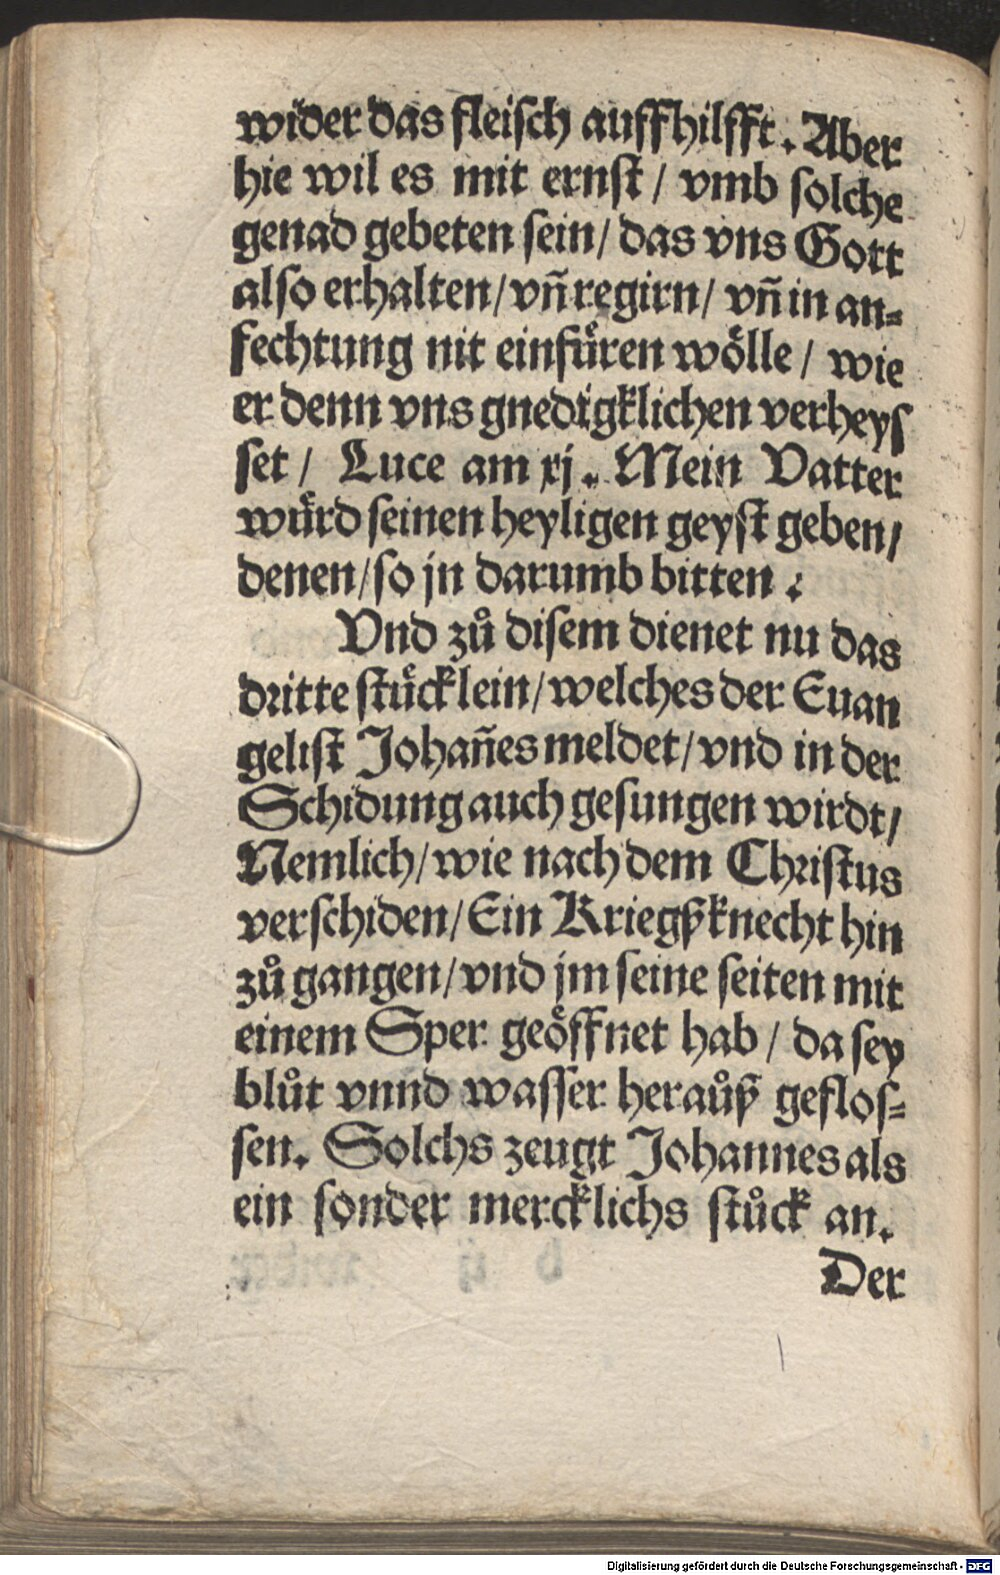 wider das fleisch auffhilfft. Aber
hie wil es mit ernst / vmb solche
genad gebeten sein / das vns Gott
also erhalten / vñ regirn / vñ in an⸗
fechtung nit einfuͤren woͤlle / wie
er denn vns gnedigklichen verheys
set / Luce am xj. Mein Vatter
wuͤrd seinen heyligen geyst geben /
denen / so jn darumb bitten.
Vnd zuͦ disem dienet nu das
dritte stuͤcklein / welches der Euan
gelist Johañes meldet / vnd in der
Schidung auch gesungen wirdt /
Nemlich / wie nach dem Christus
verschiden / Ein Kriegßknecht hin
zuͦ gangen / vnd jm seine seiten mit
einem Sper geoͤffnet hab / da sey
bluͦt vnnd wasser herauͦß geflos⸗
sen. Solchs zeugt Johannes als
ein sonder mercklichs stuͦck an.
Der
Digitalisierung gefördert durch die Deutsche Forschungsgemeinschaft - DFG